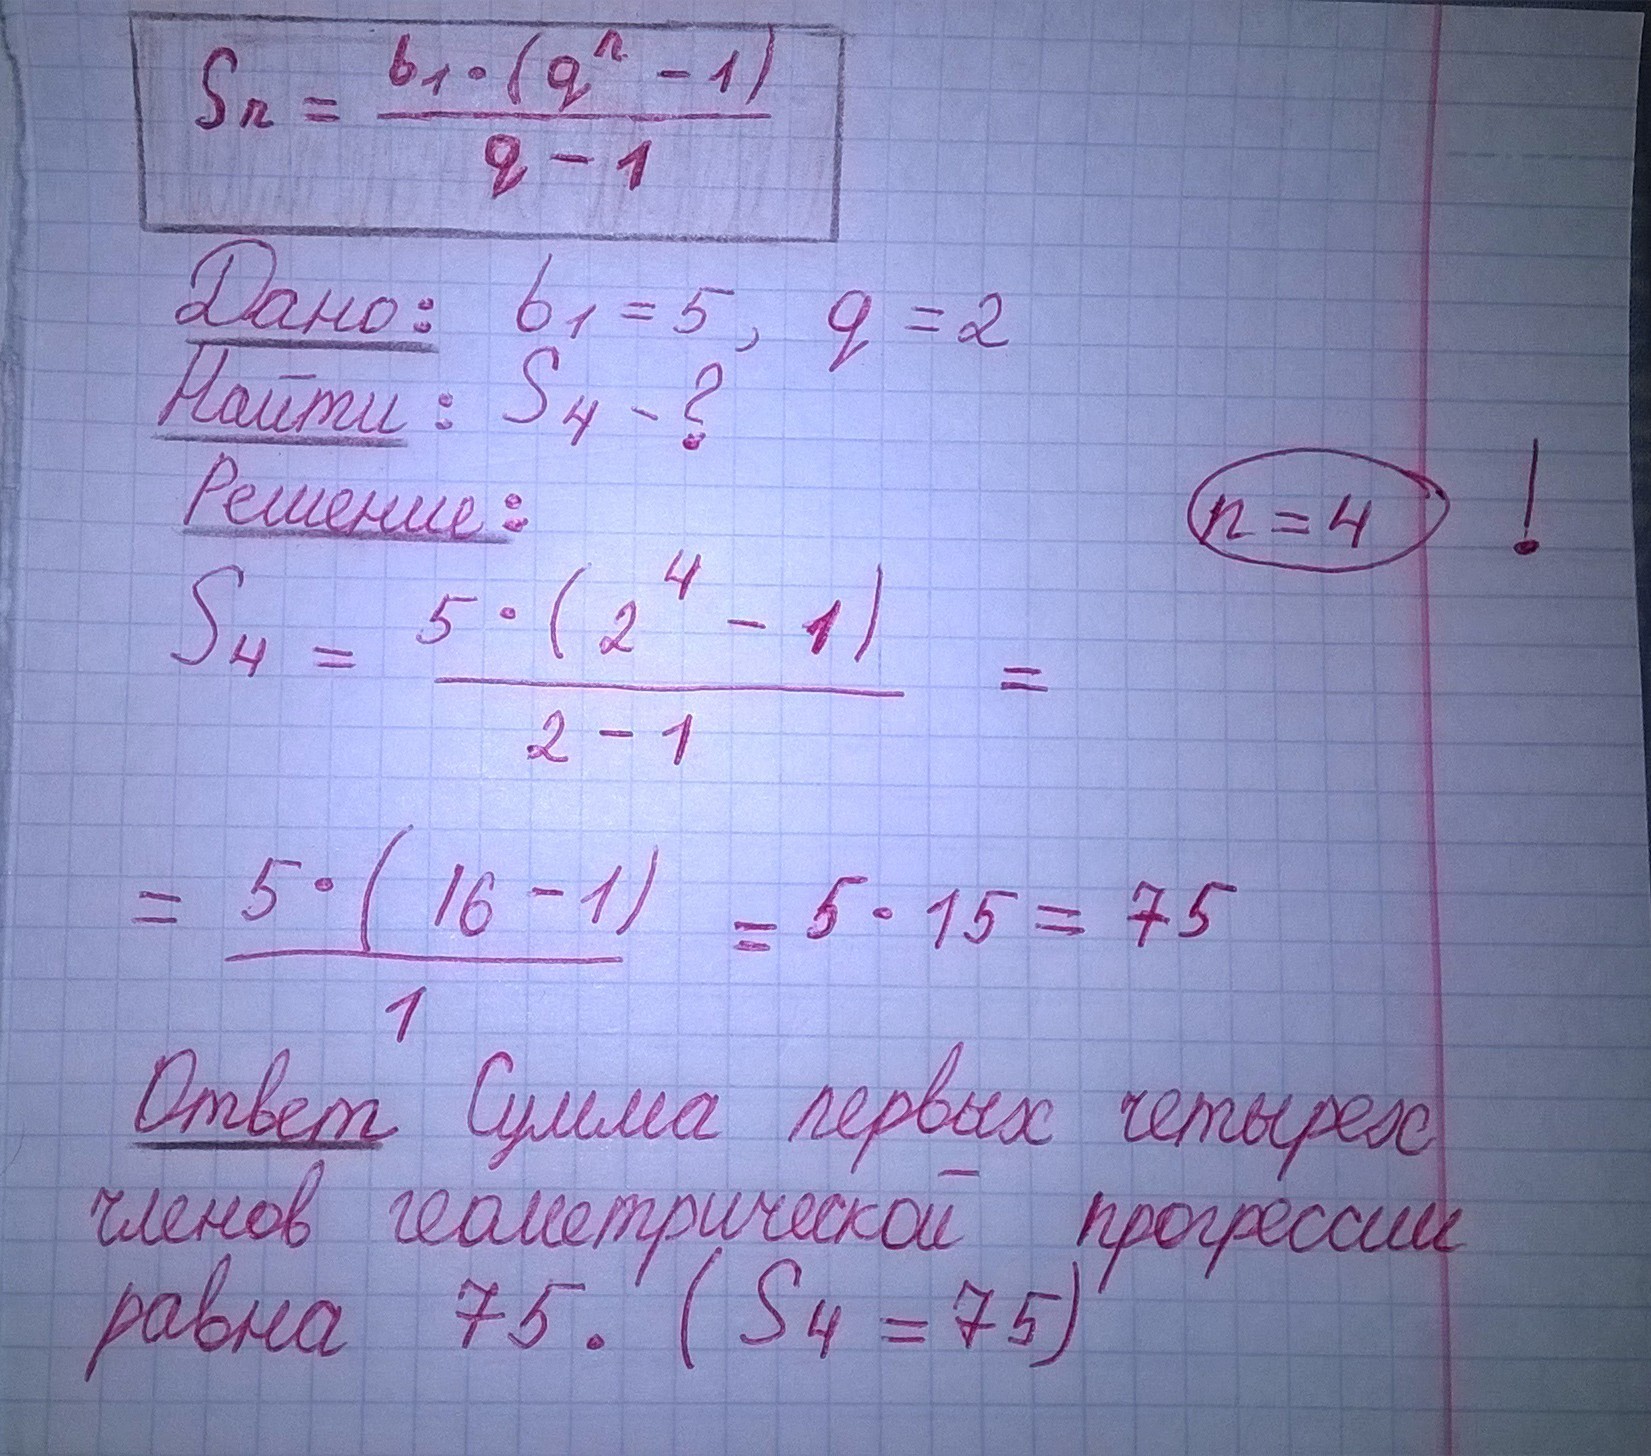 Sn = b1 · (q^n − 1) / (q − 1)
Дано: b1 = 5, q = 2
Найти: S4 - ?
Решение:
n = 4 !
S4 = 5 · (2^4 − 1) / (2 − 1) =
= 5 · (16 − 1) / 1 = 5 · 15 = 75
Ответ Сумма первых четырех
членов геометрической прогрессии
равна 75. (S4 = 75)